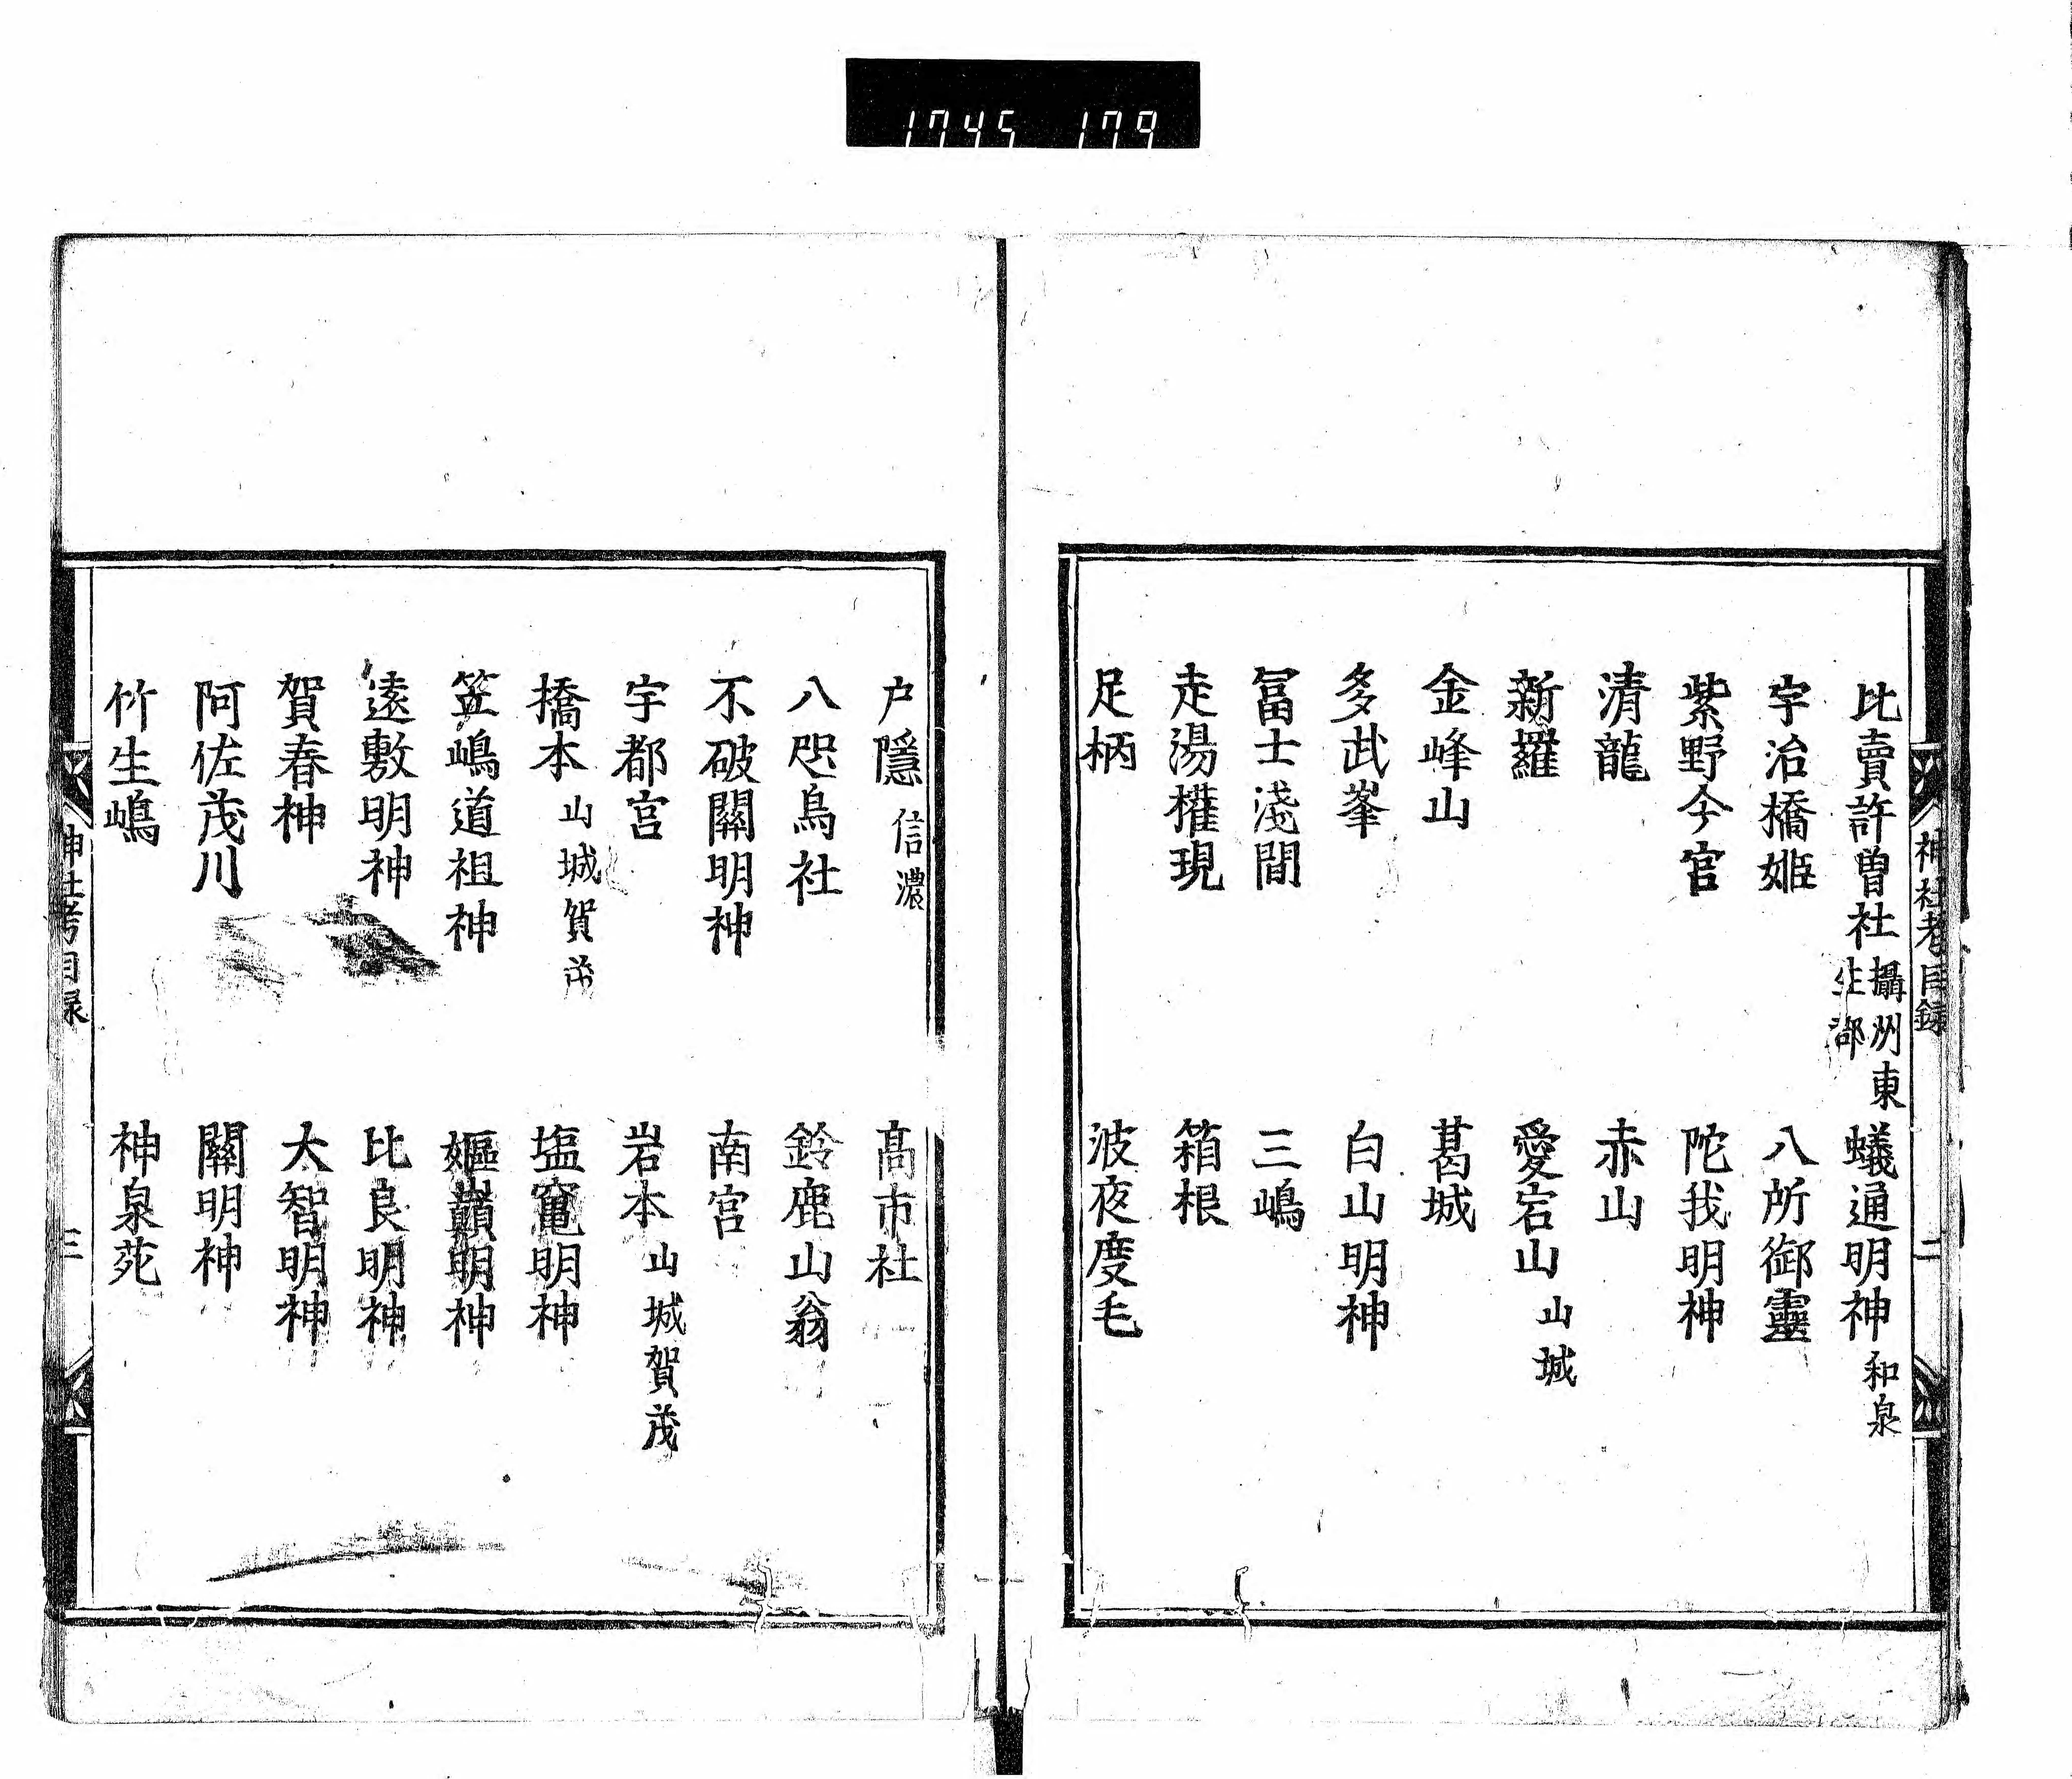 1745 179
神社考目録
二
比賣許曽社 攝洲東生郡 蟻通明神 和泉
宇治橋姫 八所御靈
紫野今宮 陀我明神
清龍 赤山
新羅 愛宕山 山城
金峰山 葛城
多武峯 白山明神
冨士淺間 三嶋
走湯權現 箱根
足柄 波夜度毛
戸隱 信濃 髙市社
八咫烏社 鈴鹿山翁
不破關明神 南宮
宇都宮 岩本 山城賀茂
橋本 山城賀茂 塩竃明神
笠嶋道祖神 嫗嶽明神
遠敷明神 比良明神
賀春神 大智明神
阿佐茂川 關明神
竹生嶋 神泉苑
神社考目録
三